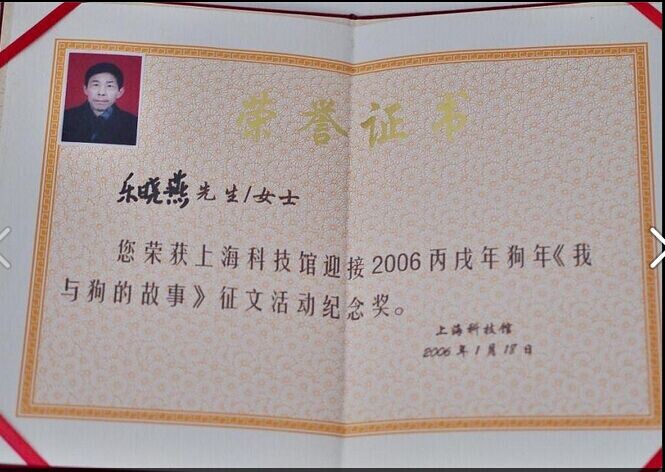 荣誉证书
乐晓燕先生/女士
您荣获上海科技馆迎接2006丙戌年狗年《我
与狗的故事》征文活动纪念奖。
上海科技馆
2006年1月18日